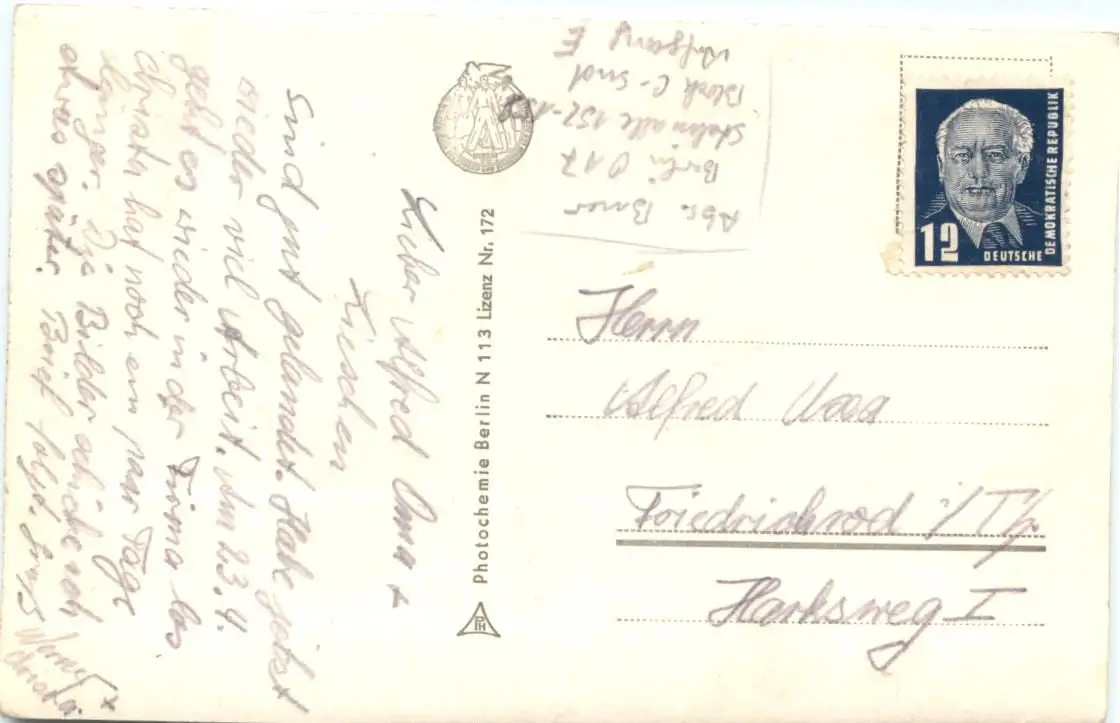 Lieber Alfred Anna +
Lieschen
Sind gut gelandet. Habe jetzt
wieder viel Arbeit. Am 23.4.
geht es wieder in der Firma los.
Christa hat noch ein paar Tage
länger. Die Bilder schicke ich
etwas später. Brief folgt. Gruß
Werner +
Christa.
Abs. Bauer
Berlin O 17
Stalinalle 152-158
Block C-Süd
Aufgang E
Photochemie Berlin N 113 Lizenz Nr. 172
PH
12
DEUTSCHE
DEMOKRATISCHE REPUBLIK
Herrn
Alfred
Friedrichrod i/Th.
Harksweg I